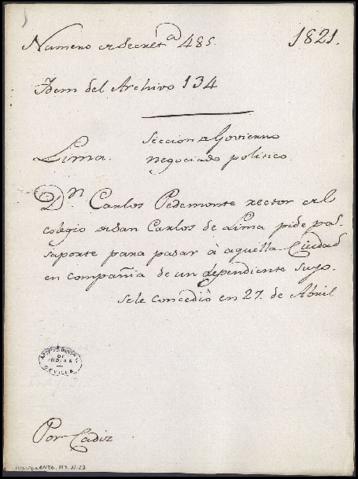 Numero de Secretª 485. 1821.
Idem del Archivo 134
Seccion de Govierno
Lima. Negociado politico
Dn. Carlos Pedemonte rector del
colegio de San Carlos de Lima pide pas
saporte para pasar à aquella Ciudad
en compañia de un dependiente suyo.
Se le concedió en 27. de Abril
ARCHIVO GENERAL
DE
INDIAS
SEVILLA
Por Cadiz